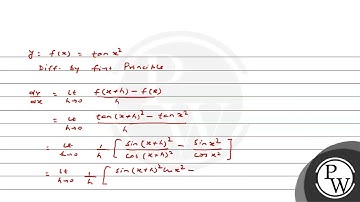 y = f(x) = tan x²
Diff. by first Principle
dy/dx = lt h→0 f(x+h) - f(x) / h
= lt h→0 tan(x+h)² - tan x² / h
= lt h→0 1/h [ sin(x+h)² / cos(x+h)² - sin x² / cos x² ]
= lt h→0 1/h [ sin(x+h)² cos x² -
PW
PW